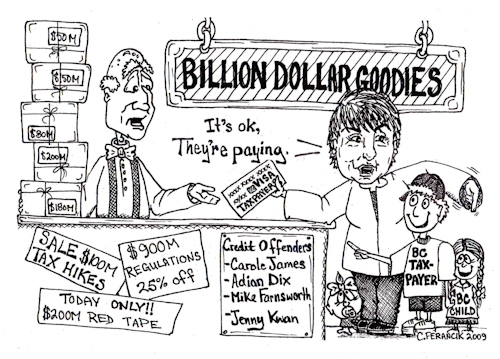 BILLION DOLLAR GOODIES
$50M
$50M
$80M
$200M
$180M
It's ok,
They're paying.
XXXX XXXX XXXX
VISA
TAXPAYER
SALE $100M
TAX HIKES
$900M
REGULATIONS
25% off
TODAY ONLY!!
$200M RED TAPE
Credit Offenders
-Carole James
-Adian Dix
-Mike Farnsworth
-Jenny Kwan
BC
TAX-
PAYER
BC
CHILD
C. FERANCIK 2009